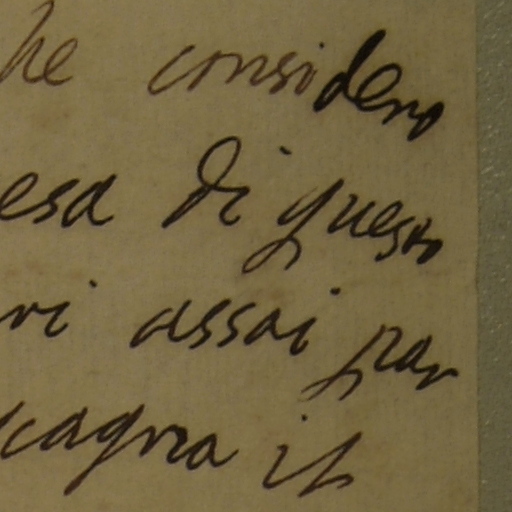 he considero
esa di questo
ri assai par
il